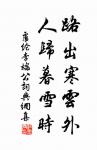 路出寒雲外
人歸暮雪時
盧綸李端公詞典網集